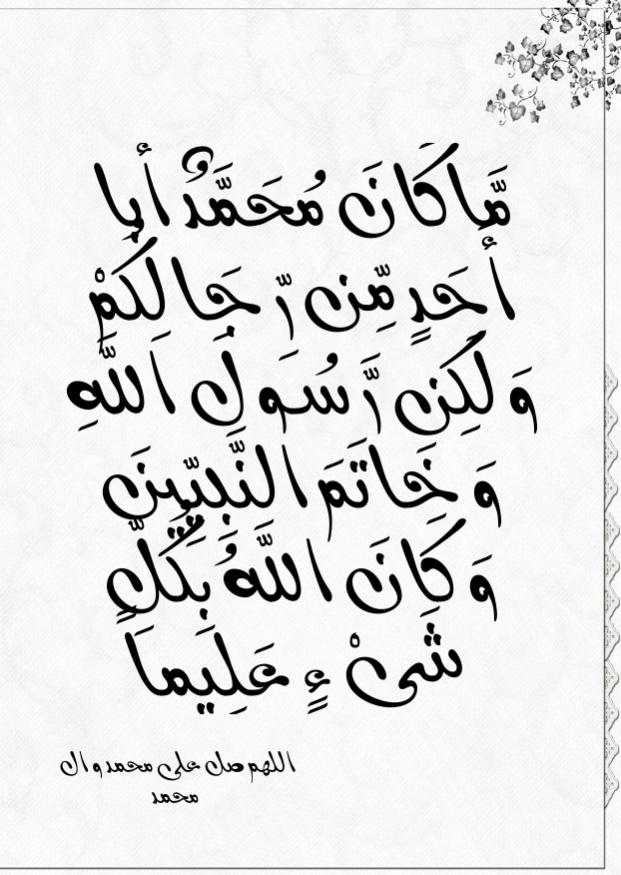 مَّا كَانَ مُحَمَّدٌ أَبَا
أَحَدٍ مِّن رِّجَالِكُمْ
وَلَٰكِن رَّسُولَ اللَّهِ
وَخَاتَمَ النَّبِيِّينَ
وَكَانَ اللَّهُ بِكُلِّ
شَىْءٍ عَلِيمًا
اللهم صل على محمد وال
محمد